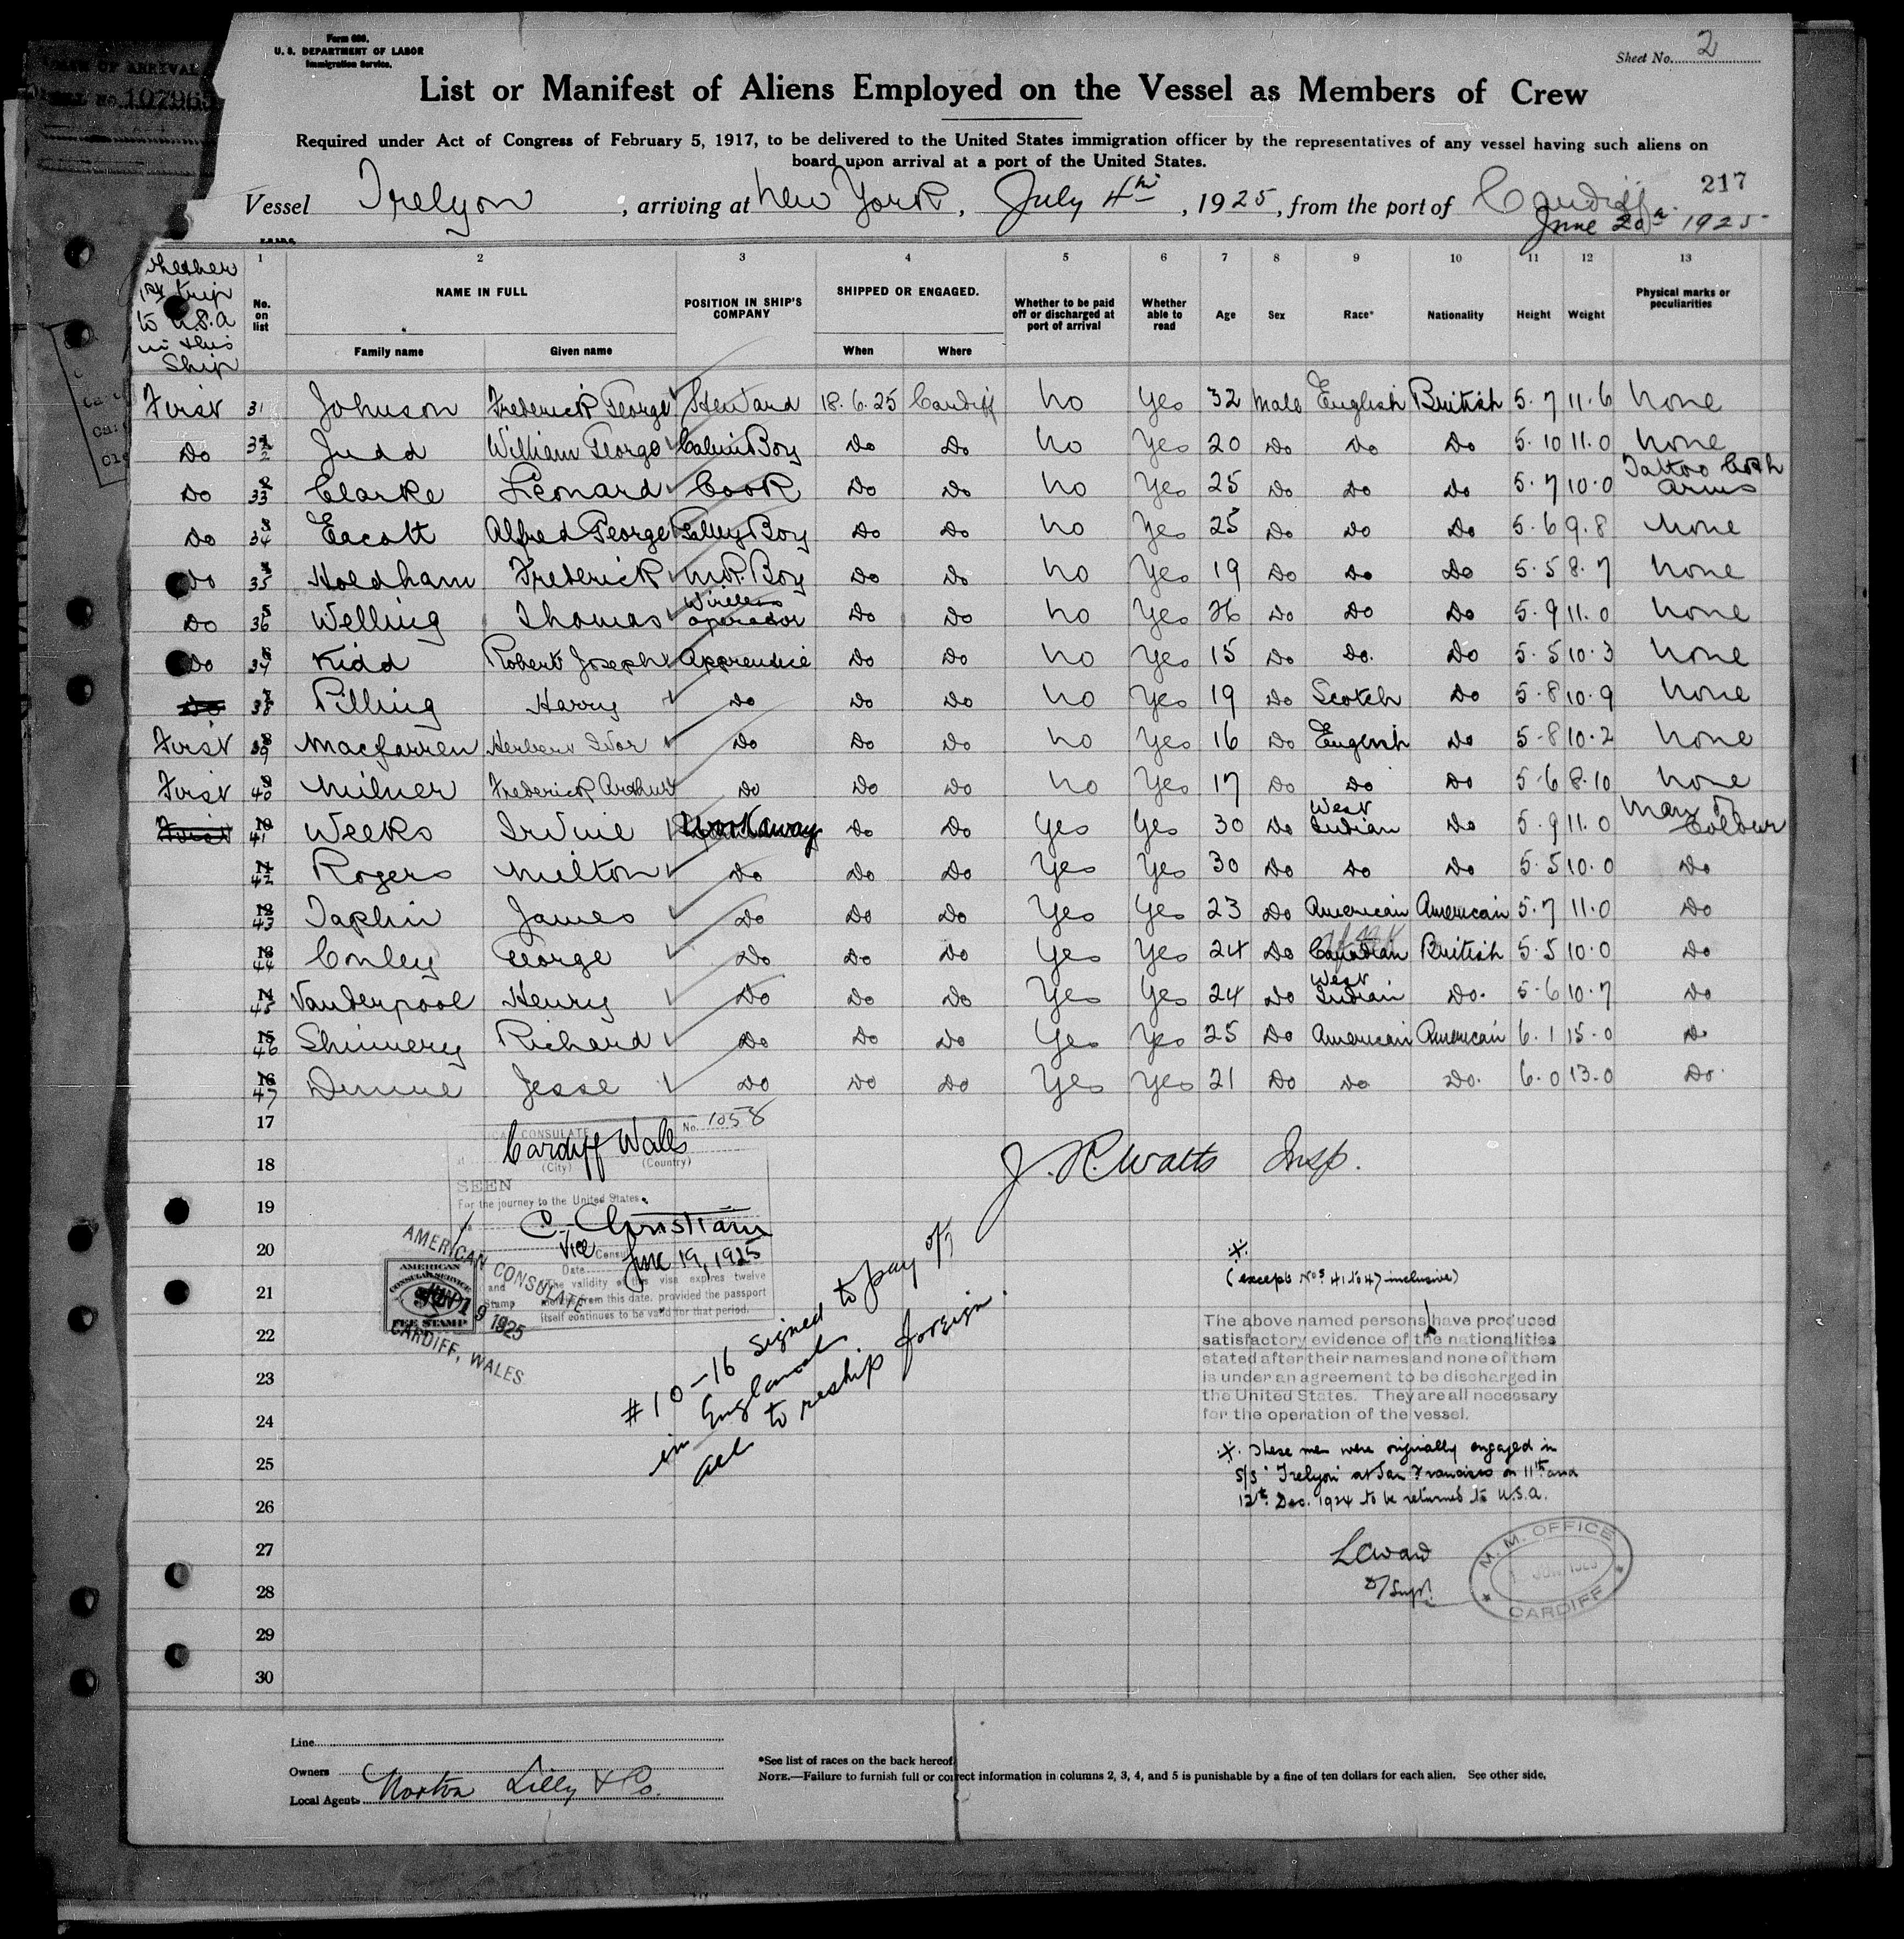 Form 680.
U. S. DEPARTMENT OF LABOR
Immigration Service.
Sheet No. 2
107965
List or Manifest of Aliens Employed on the Vessel as Members of Crew
Required under Act of Congress of February 5, 1917, to be delivered to the United States immigration officer by the representatives of any vessel having such aliens on
board upon arrival at a port of the United States.
217
Vessel Trelyon, arriving at New York, July 4th, 1925, from the port of Cardiff
June 20th 1925
Whether 1st trip to U.S.A in this Ship
1 2 3 4 5 6 7 8 9 10 11 12 13
No. on list
NAME IN FULL
Family name Given name
POSITION IN SHIP'S COMPANY
SHIPPED OR ENGAGED.
When Where
Whether to be paid off or discharged at port of arrival
Whether able to read
Age Sex Race* Nationality Height Weight
Physical marks or peculiarities
First 31 Johnson Frederick George Steward 18.6.25 Cardiff No Yes 32 Male English British 5.7 11.6 None
Do 32 Judd William George Cabin Boy Do Do No Yes 20 Do Do Do 5.10 11.0 None
Do 33 Clarke Leonard Cook Do Do No Yes 25 Do Do Do 5.7 10.0 Tattoo both arms
Do 34 Eacott Alfred George Galley Boy Do Do No Yes 25 Do Do Do 5.6 9.8 None
Do 35 Holdham Frederick M.R. Boy Do Do No Yes 19 Do Do Do 5.5 8.7 None
Do 36 Welling Thomas Wireless operator Do Do No Yes 26 Do Do Do 5.9 11.0 None
Do 37 Kidd Robert Joseph Apprentice Do Do No Yes 15 Do Do. Do 5.5 10.3 None
Do 38 Pilling Harry Do Do Do No Yes 19 Do Scotch Do 5.8 10.9 None
First 39 Macfarren Herbert Ivor Do Do Do No Yes 16 Do English Do 5.8 10.2 None
First 40 Milner Frederick Arthur Do Do Do No Yes 17 Do Do Do 5.6 8.10 None
First 10 41 Weeks Irvine Workaway Do Do Yes Yes 30 Do West Indian Do 5.9 11.0 Man of Colour
11 42 Rogers Milton Do Do Do Yes Yes 30 Do Do Do 5.5 10.0 Do
12 43 Taplin James Do Do Do Yes Yes 23 Do American American 5.7 11.0 Do
13 44 Conley George Do Do Do Yes Yes 24 Do Canadian British 5.5 10.0 Do
14 45 Vanderpool Henry Do Do Do Yes Yes 24 Do West Indian Do. 5.6 10.7 Do
15 46 Shinnery Richard Do Do Do Yes Yes 25 Do American American 6.1 15.0 Do
16 47 Dunne Jesse Do Do Do Yes Yes 21 Do Do Do. 6.0 13.0 Do.
17
18
19
20
21
22
23
24
25
26
27
28
29
30
CONSULATE No. 1058
Cardiff Wales
(City) (Country)
SEEN
For the journey to the United States.
C. Christiani
Vice Consul
Date June 19, 1925
The validity of this visa expires twelve
months from this date, provided the passport
itself continues to be valid for that period.
and
Stamp
AMERICAN CONSULATE
CARDIFF, WALES
AMERICAN
CONSULAR SERVICE
FEE STAMP
JUN 19 1925
J. R. Watts Insp.
#10-16 signed to pay off
in England
all to reship foreign.
*
(except Nos 41 to 47 inclusive)
The above named persons have produced
satisfactory evidence of the nationalities
stated after their names and none of them
is under an agreement to be discharged in
the United States. They are all necessary
for the operation of the vessel.
* These men were originally engaged in
S/S "Trelyon" at San Francisco on 11th and
12th Dec. 1924 to be returned to U.S.A.
L Coward
D/Supt.
M. M. OFFICE
CARDIFF
Line
Owners
Local Agents Norton Lilly & Co.
*See list of races on the back hereof
NOTE.—Failure to furnish full or correct information in columns 2, 3, 4, and 5 is punishable by a fine of ten dollars for each alien. See other side.